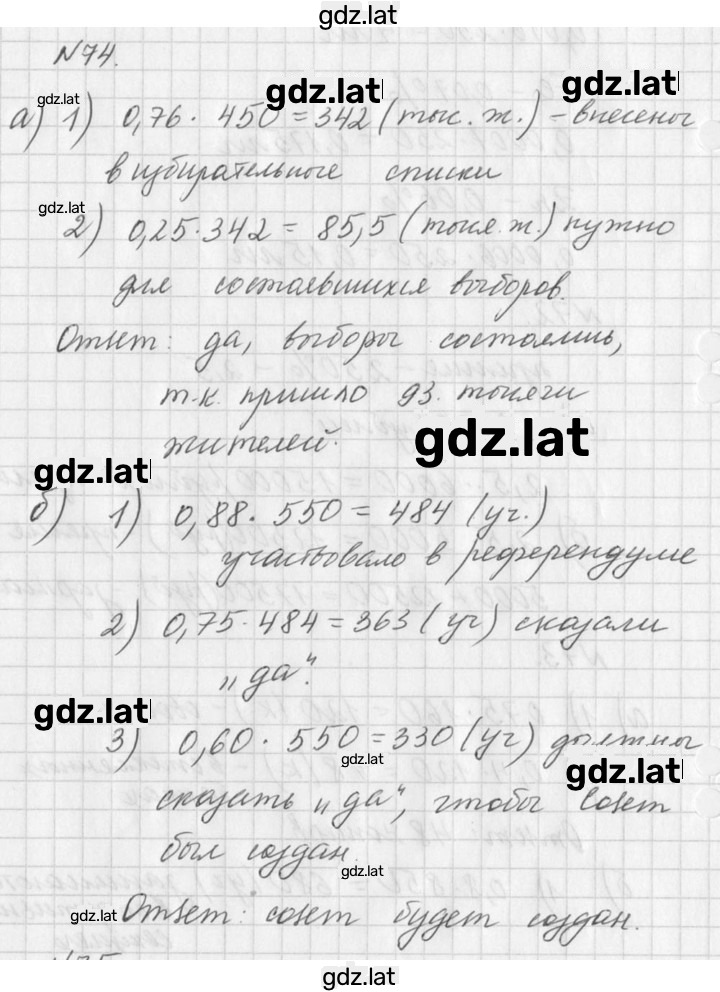 gdz.lat
N74.
gdz.lat gdz.lat gdz.lat
а) 1) 0,76 · 450 = 342 (тыс. ж.) – внесены
в избирательные списки
gdz.lat
2) 0,25 · 342 = 85,5 (тыся. ж.) нужно
для состоявшихся выборов.
Ответ: да, выборы состоялись,
т.к. пришло 93. тысячи
жителей.
gdz.lat
gdz.lat
б) 1) 0,88 · 550 = 484 (уч.)
участвовало в референдуме
2) 0,75 · 484 = 363 (уч) сказали
„да“.
gdz.lat
3) 0,60 · 550 = 330 (уч) должны
gdz.lat gdz.lat
сказать „да“, чтобы Совет
был создан.
gdz.lat
gdz.lat Ответ: совет будет создан.
gdz.lat